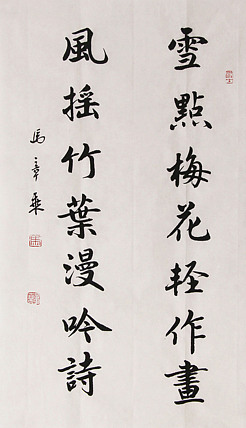 雪點梅花輕作畫
風摇竹葉漫吟詩
馬章乘